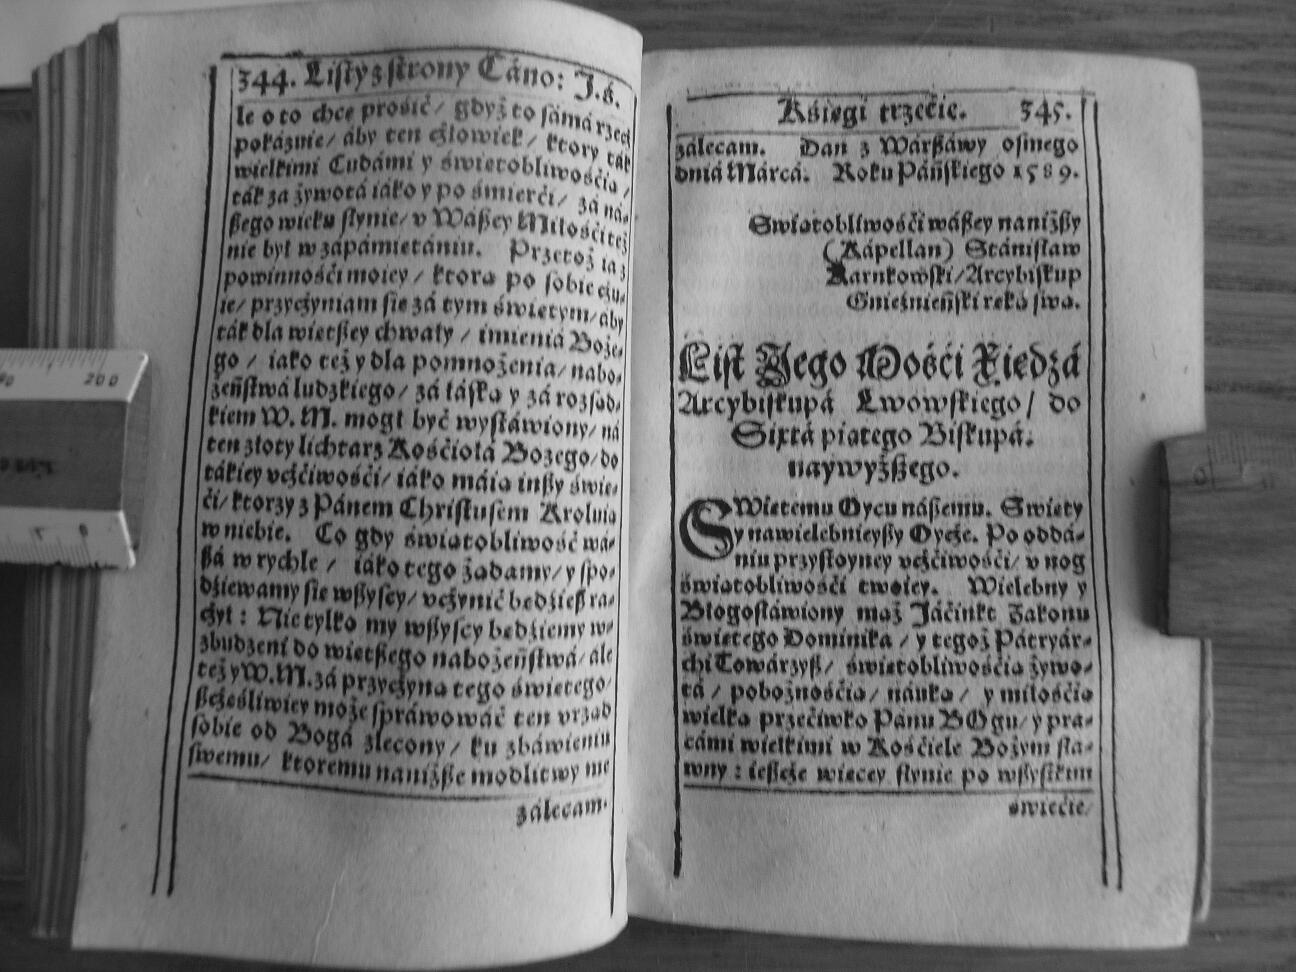 344. Listy z strony Cáno: J. ś.
le o to chce prośić / gdyż to sámá rzecż
pokáznie / áby ten cżłowiek / ktory ták
wielkimi Cudámi y świetobliwośćia /
ták zá żywotá iáko y po śmierći / zá ná-
ßego wieku słynie / v Wáßey Miłośći też
nie był w zapámietániu. Przetoż ia z
powinnośći moiey / ktora po sobie cżu-
ie / przycżyniam sie zá tym świetym / áby
ták dla wietßey chwały / imieniá Boże-
go / iako też y dla pomnożenia / nabo-
żeńſtwá ludzkiego / zá łáſką y zá rozſad-
kiem W. M. mogł być wyſtáwiony / ná
ten złoty lichtarz Kośćiołá Bozego / do
tákiey vcżćiwośći / iáko máia inßy świe-
ći / ktorzy z Pánem Chriſtuſem Kroluia
w niebie. Co gdy świątobliwość wá-
ßá w rychle / iáko tego żadamy / y ſpo-
dźiewamy ſie wßyſcy / vcżynić bedźieß ra-
cżył : Nie tylko my wßyſcy bedźiemy w-
zbudzeni do wietßego nabożeńſtwá / ále
też y W. M. zá przycżyna tego świetego /
ßcżeśliwiey może ſpráwowáć ten vrzad
ſobie od Bogá zlecony / ku zbáwieniu
ſwemu / ktoremu naniżßie modlitwy me
zálecam.
Kśiegi trzećie. 345.
zálecam. Dan z Wárßáwy oſmego
dniá Márcá. Roku Páńſkiego 1589.
Swiatobliwośći wáßey naniżßy
(Kápellan) Stániſław
Karnkowſki / Arcybiſkup
Gnieźnieńſki reka ſwa.
Liſt Jego Mośći Xiedzá
Arcybiſkupá Lwowſkiego / do
Sixtá piatego Biſkupá.
naywyżßego.
SWietemu Oycu náßemu. Swiety
y nawielebnieyßy Oycże. Po oddá-
niu przyſtoyney vcżćiwośći / v nog
świątobliwośći twoiey. Wielebny y
Błogoſłáwiony maż Jáćinkt Zakonu
świetego Dominika / y tegoż Pátryár-
chi Towárzyß / świetobliwośćia żywo-
tá / pobożnośćia / náuka / y miłośćia
wielka przećiwko Pánu BOgu / y pra-
cámi wielkimi w Kośćiele Bożym ſła-
wny : ieſzcże wiecey ſłynie po wßyſtkim
świećie /